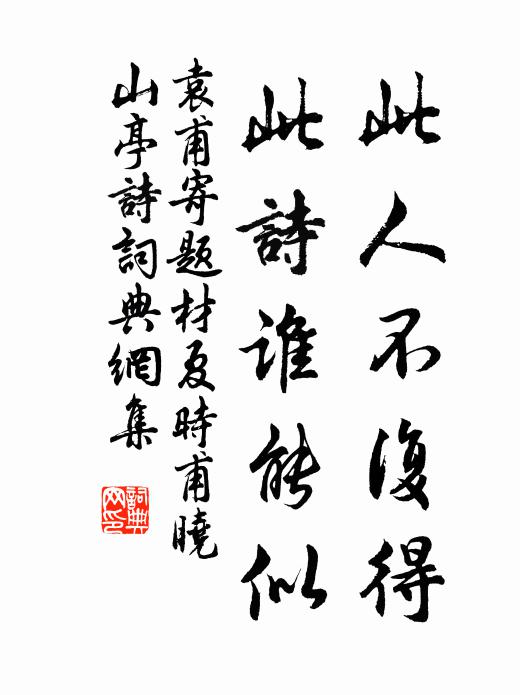 此人不復得
此詩誰能似
袁甫寄題材夏時甫曉
山亭詩詞典網集
詞典網印